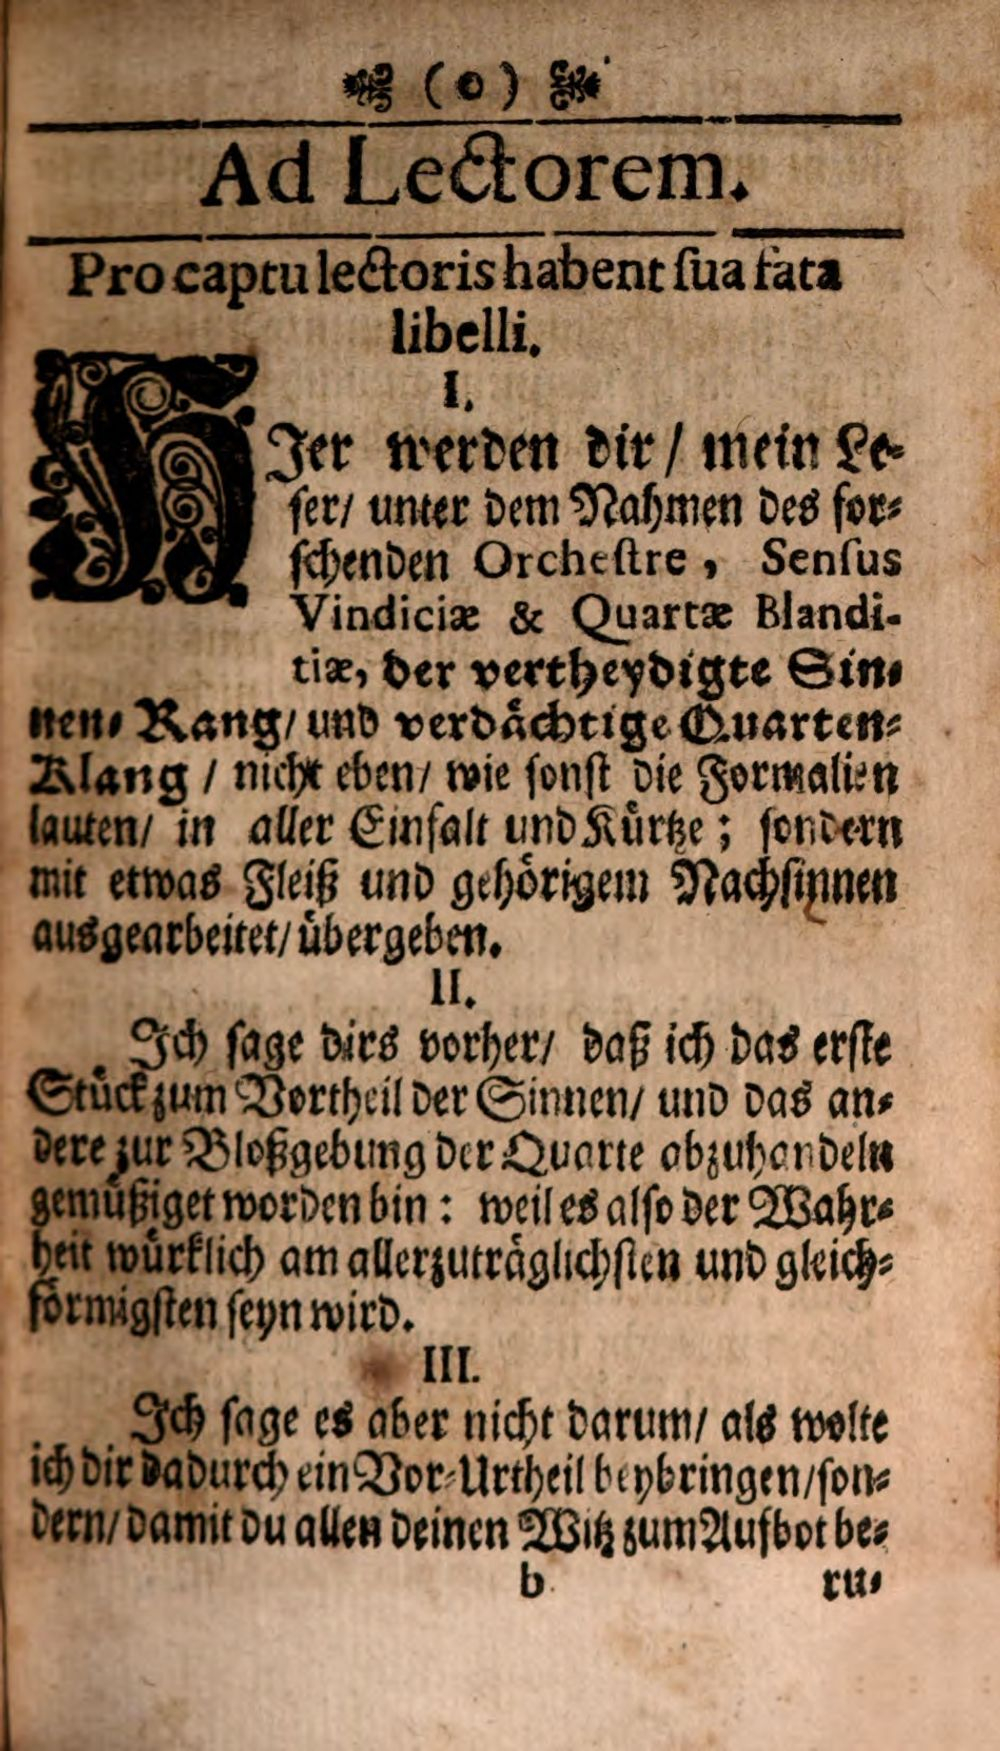 ( o )
Ad Lectorem.
Pro captu lectoris habent ſua fata
libelli.
I.
HJer werden dir / mein Le-
ſer/ unter dem Nahmen des for-
ſchenden Orcheſtre, Senſus
Vindiciæ & Quartæ Blandi-
tiæ, der vertheydigte Sin-
nen-Rang/ und verdaͤchtige Quarten-
Klang / nicht eben/ wie ſonſt die Formalien
lauten/ in aller Einfalt und Kuͤrtze; ſondern
mit etwas Fleiß und gehoͤrigem Nachſinnen
ausgearbeitet/ uͤbergeben.
II.
Jch ſage dirs vorher/ daß ich das erſte
Stuͤck zum Vortheil der Sinnen/ und das an-
dere zur Bloßgebung der Quarte abzuhandeln
gemuͤßiget worden bin: weil es alſo der Wahr-
heit wuͤrklich am allerzutraͤglichſten und gleich-
foͤrmigſten ſeyn wird.
III.
Jch ſage es aber nicht darum/ als wolte
ich dir dadurch ein Vor-Urtheil beybringen/ ſon-
dern/ damit du allen deinen Witz zum Aufbot be-
b ru-